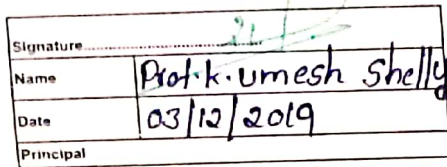 Signature....................
Name Prof. K. Umesh Shelly
Date 03/12/2019
Principal